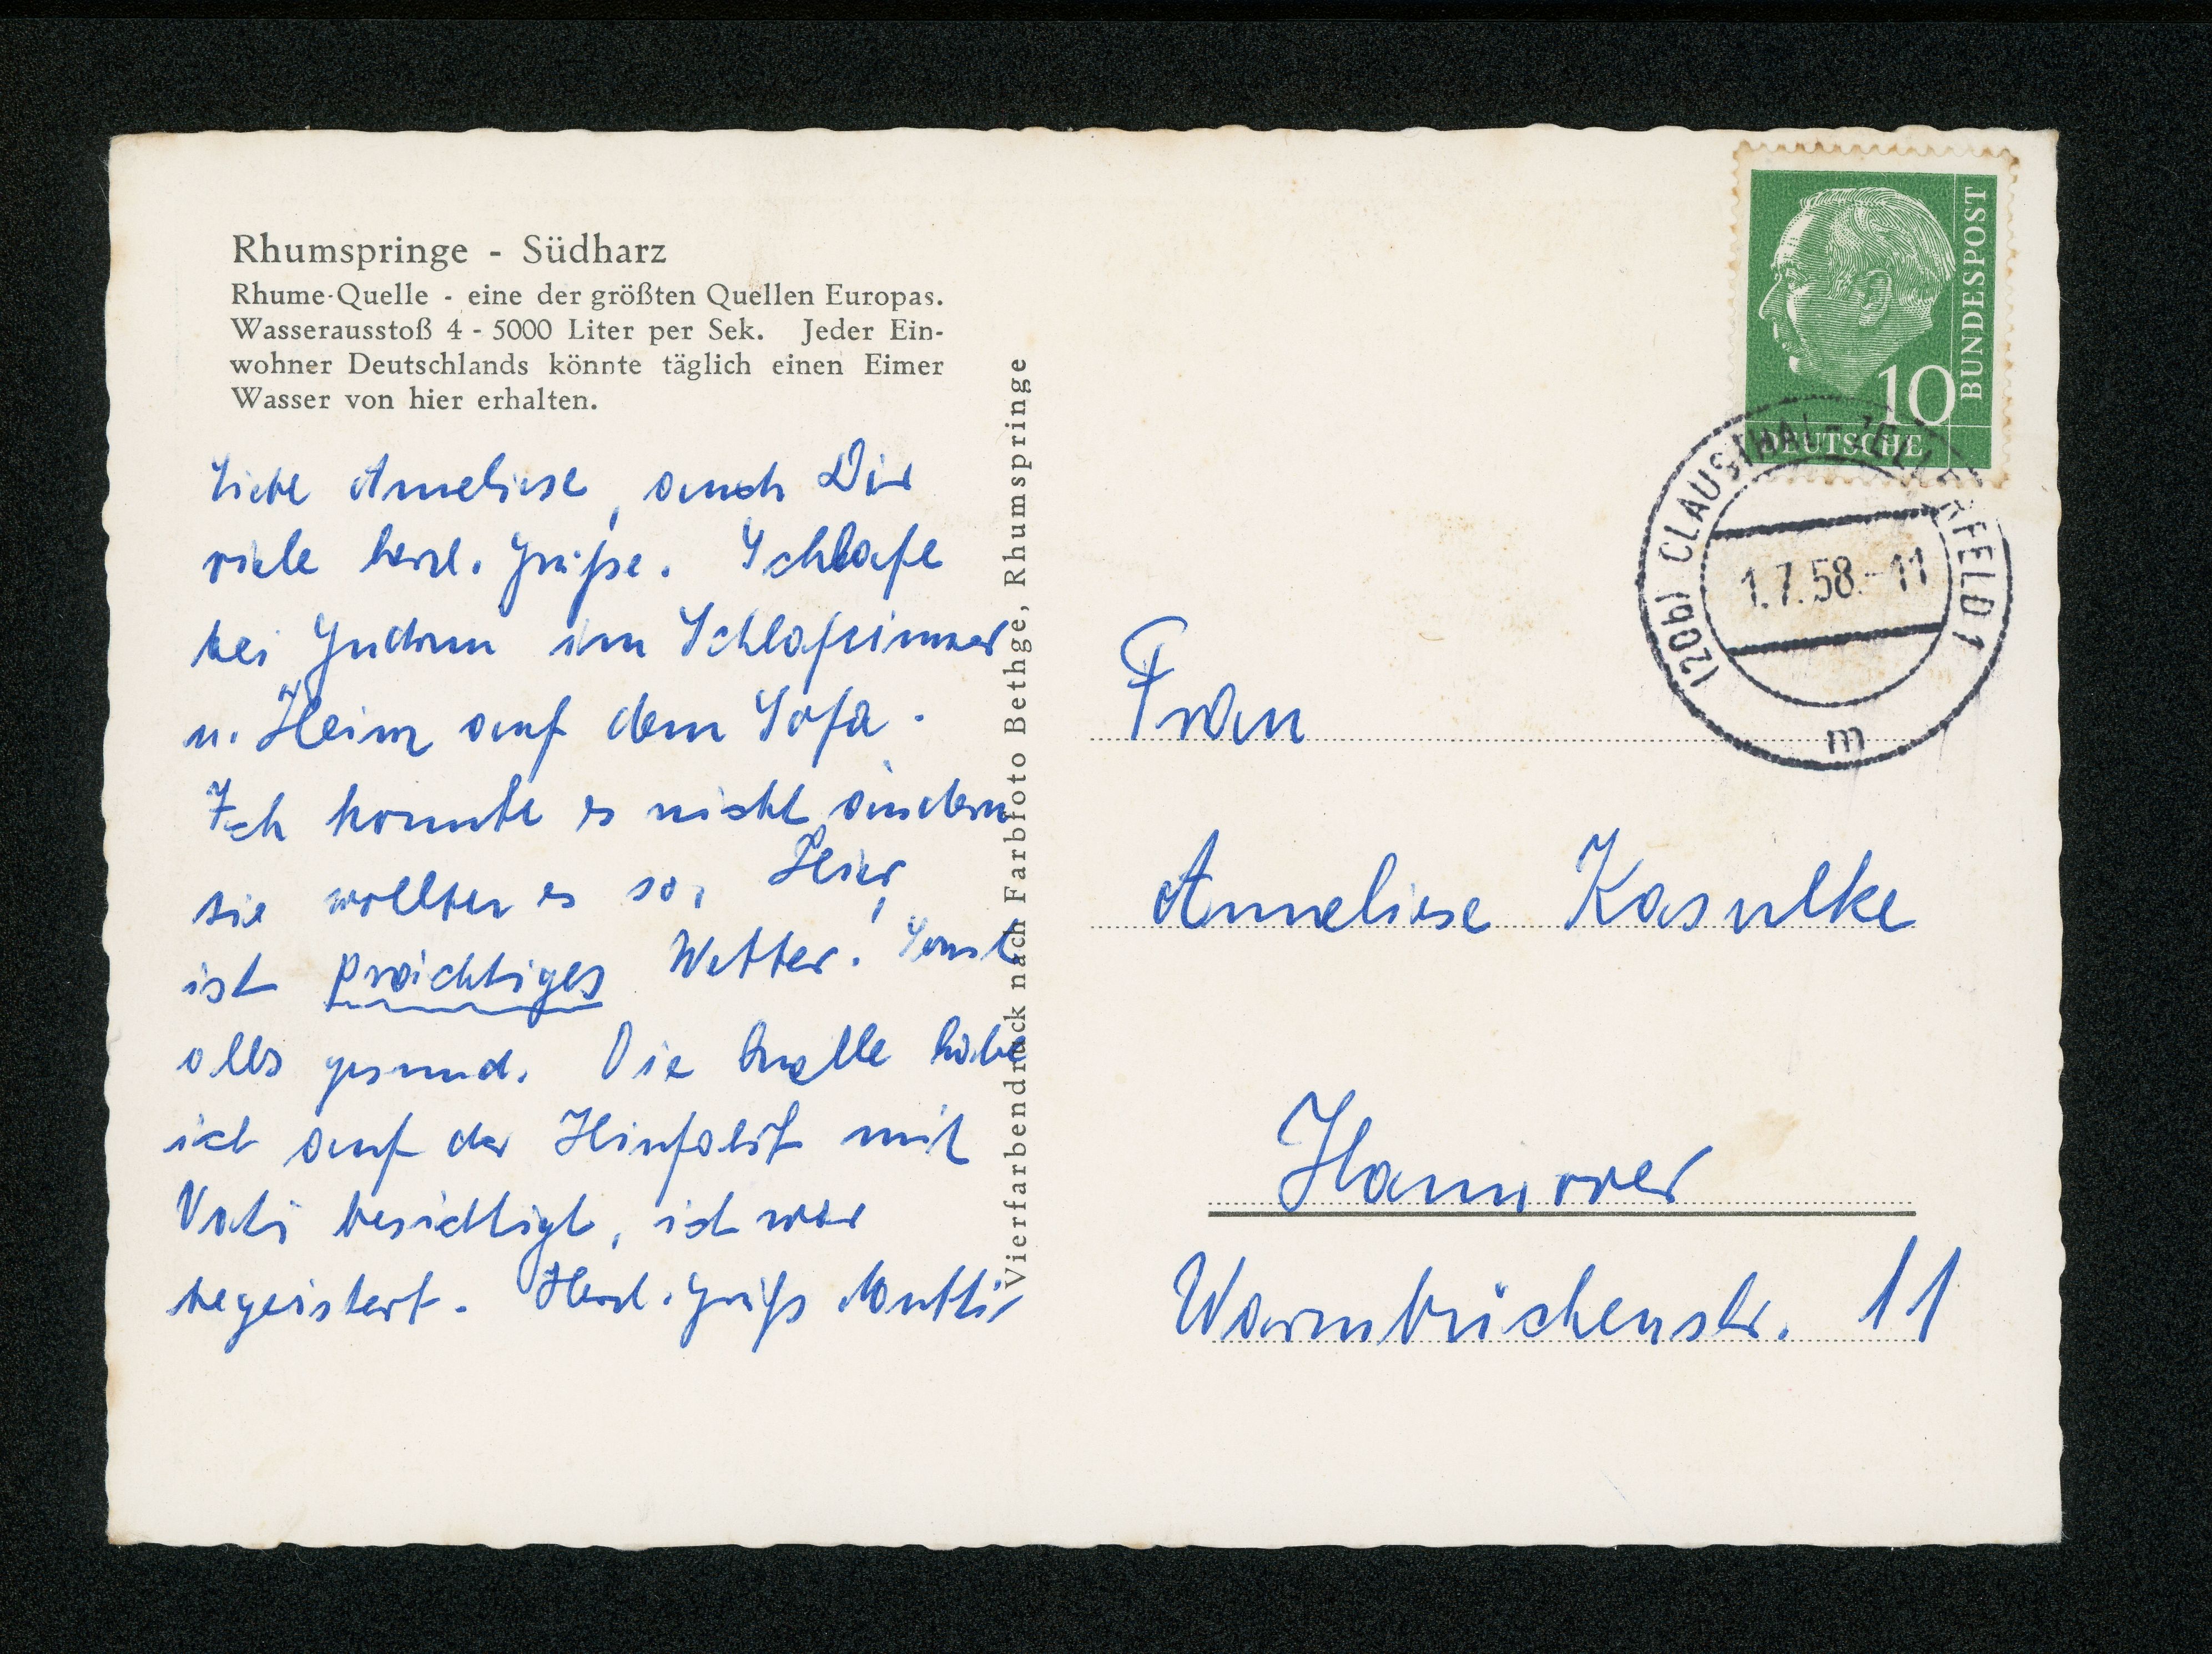 Rhumspringe - Südharz
Rhume-Quelle - eine der größten Quellen Europas.
Wasserausstoß 4 - 5000 Liter per Sek. Jeder Ein-
wohner Deutschlands könnte täglich einen Eimer
Wasser von hier erhalten.
Liebe Anneliese, auch Dir
viele herzl. Grüße. Schlafe
bei Gudrun im Schlafzimmer
u. Heinz auf dem Sofa.
Ich konnte es nicht ändern
sie wollten es so. Hier,
ist prächtiges Wetter! Sonst
alles gesund. Die Quelle habe
ich auf der Hinfahrt mit
Vati besichtigt, ich war
begeistert. Herzl. Grüße Mutti
Vierfarbendruck nach Farbfoto Bethge, Rhumspringe
BUNDESPOST
10
DEUTSCHE
(20b) CLAUSTHAL-ZELLERFELD 1
1.7.58.-11
m
Frau
Anneliese Kasulke
Hannover
Warmbüchenstr. 11